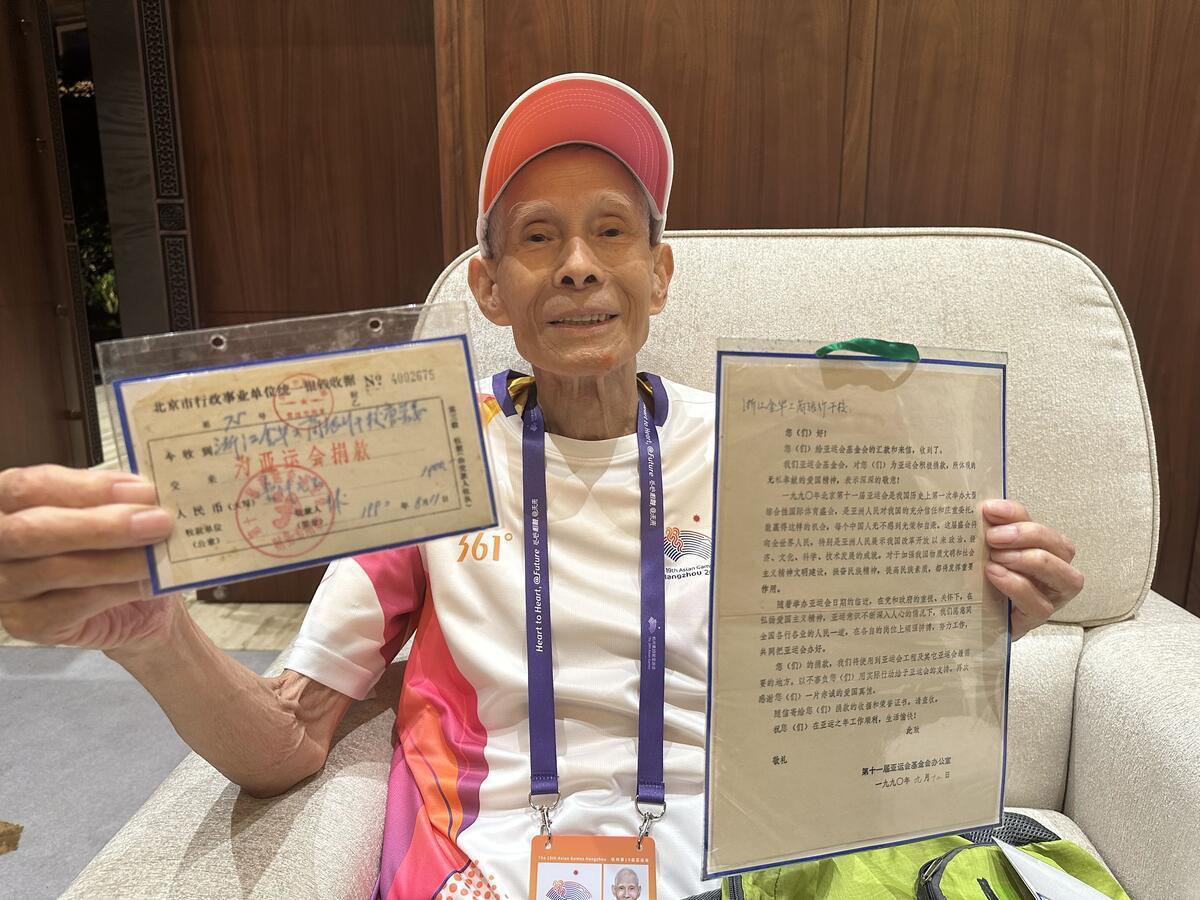 北京市行政事业单位统一银钱收据 № 4002675
第 75 号
今收到 浙江金华工商银行干校
交来 为亚运会捐款
人民币(大写)
收款单位
(公章)
收款人
(签章)
年 8月11日
361°
Heart to Heart, @Future
19th Asian Games
The 19th Asian Games Hangzhou 杭州第19届亚运会
浙江金华工商银行干校:
您(们)好!
您(们)给亚运会基金会的汇款和来信,收到了。
我们亚运基金会,对您(们)为亚运会积极捐款,所体现的
无私奉献的爱国精神,表示深深的敬意!
一九九〇年北京第十一届亚运会是我国历史上第一次举办大型
综合性国际体育盛会,是亚洲人民对我国的充分信任和庄重委托,
能赢得这样的机会,每个中国人无不感到光荣和自豪。这届盛会将
向全世界人民,特别是亚洲人民展示我国改革开放以来政治、经
济、文化、科学、技术发展的成就。对于加强我国物质文明和社会
主义精神文明建设,振奋民族精神,提高民族素质,都将发挥重要
作用。
随着举办亚运会日期的临近,在党和政府的重视、关怀下,在
弘扬爱国主义精神,亚运意识不断深入人心的情况下,我们愿意同
全国各行各业的人民一道,在各自的岗位上顽强拼搏,努力工作,
共同把亚运会办好。
您(们)的捐款,我们将使用到亚运会工程及其它亚运会最需
要的地方。以不辜负您(们)用实际行动给予亚运会的支持。再次
感谢您(们)一片赤诚的爱国真情。
随信寄给您(们)捐款的收据和荣誉证书,请查收。
祝您(们)在亚运之年工作顺利,生活愉快!
此致
敬礼
第十一届亚运会基金会办公室
一九九〇年 九月十二日